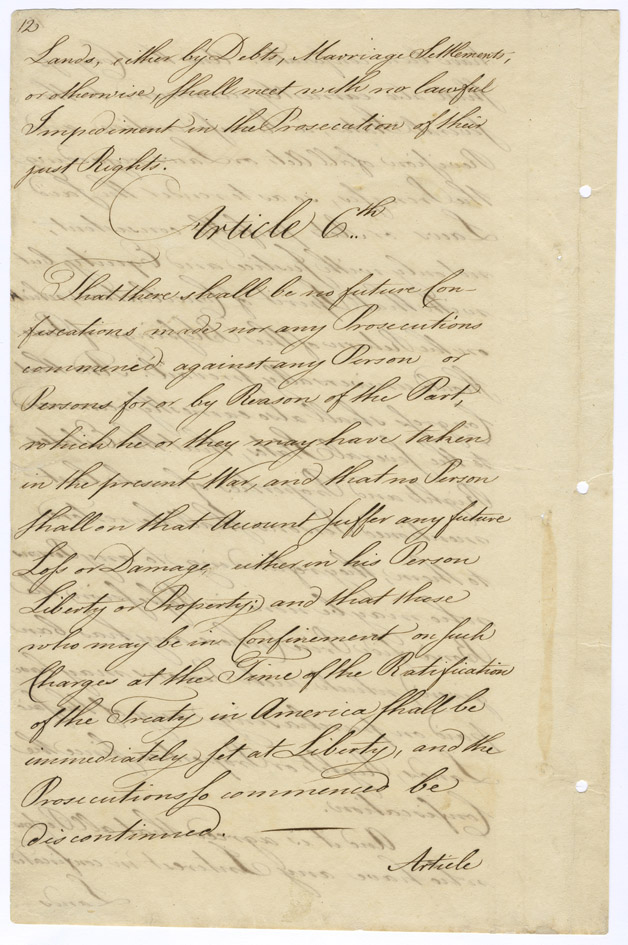 12
Lands, either by Debts, Marriage Settlements,
or otherwise, shall meet with no lawful
Impediment in the Prosecution of their
just Rights.
Article 6.th
That there shall be no future Con-
fiscations made nor any Prosecutions
commenc'd against any Person or
Persons for or by Reason of the Part,
which he or they may have taken
in the present War, and that no Person
shall on that Account suffer any future
Loss or Damage, either in his Person
Liberty or Property; and that those
who may be in Confinement on such
Charges at the Time of the Ratification
of the Treaty in America shall be
immediately set at Liberty, and the
Prosecutions so commenced be
discontinued.
Article